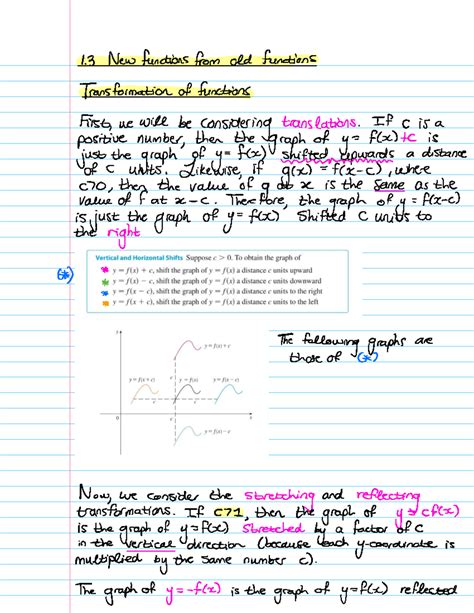 1.3 New functions from old functions
Transformation of functions
First, we will be considering translations. If c is a
positive number, then the graph of y = f(x)+c is
just the graph of y = f(x) shifted upwards a distance
of c units. Likewise, if g(x) = f(x-c), where
c>0, then the value of g at x is the same as the
value of f at x-c. Therefore, the graph of y = f(x-c)
is just the graph of y = f(x) shifted c units to
the right
Vertical and Horizontal Shifts Suppose c > 0. To obtain the graph of
y = f(x) + c, shift the graph of y = f(x) a distance c units upward
(*)
y = f(x) − c, shift the graph of y = f(x) a distance c units downward
y = f(x − c), shift the graph of y = f(x) a distance c units to the right
y = f(x + c), shift the graph of y = f(x) a distance c units to the left
The following graphs are
those of (*)
y = f(x) + c
y = f(x + c) c y = f(x) y = f(x − c)
c c
0 c x
y = f(x) − c
Now, we consider the stretching and reflecting
transformations. If c>1, then the graph of y = cf(x)
is the graph of y = f(x) stretched by a factor of c
in the vertical direction (because each y-coordinate is
multiplied by the same number c).
The graph of y = -f(x) is the graph of y = f(x) reflected